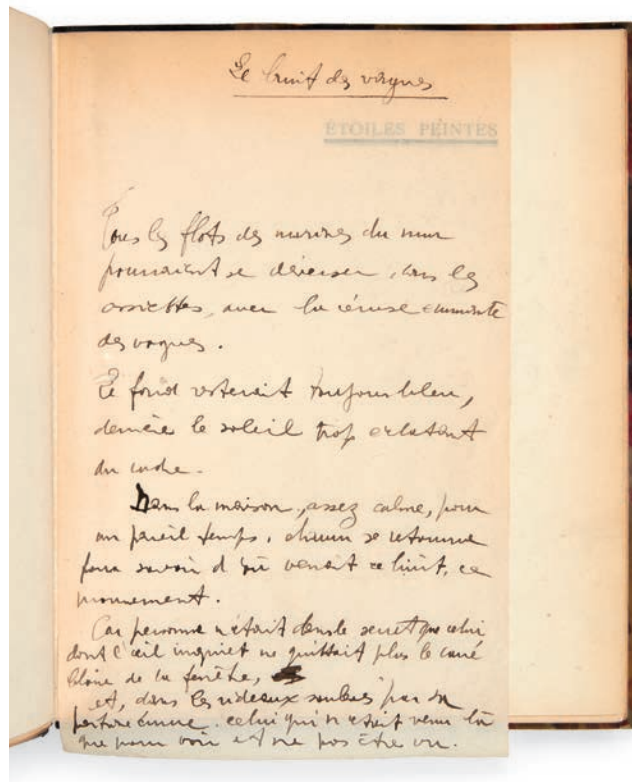 Le bruit des vagues
ÉTOILES PEINTES
Tous les flots des marines du mur
pourraient se déverser dans les
assiettes, avec la céruse écumante
des vagues.
Le fond resterait toujours bleu,
derrière le soleil trop éclatant
du cadre.
Dans la maison, assez calme, pour
un pareil temps, chacun se retourne
pour savoir d'où venait ce bruit, ce
mouvement.
Car personne n'était dans le secret que celui
dont l'œil inquiet ne quittait plus le carré
blanc de la fenêtre,
et, dans les rideaux soulevés par sa
poitrine émue, celui qui n'était venu là
que pour voir et ne pas être vu.